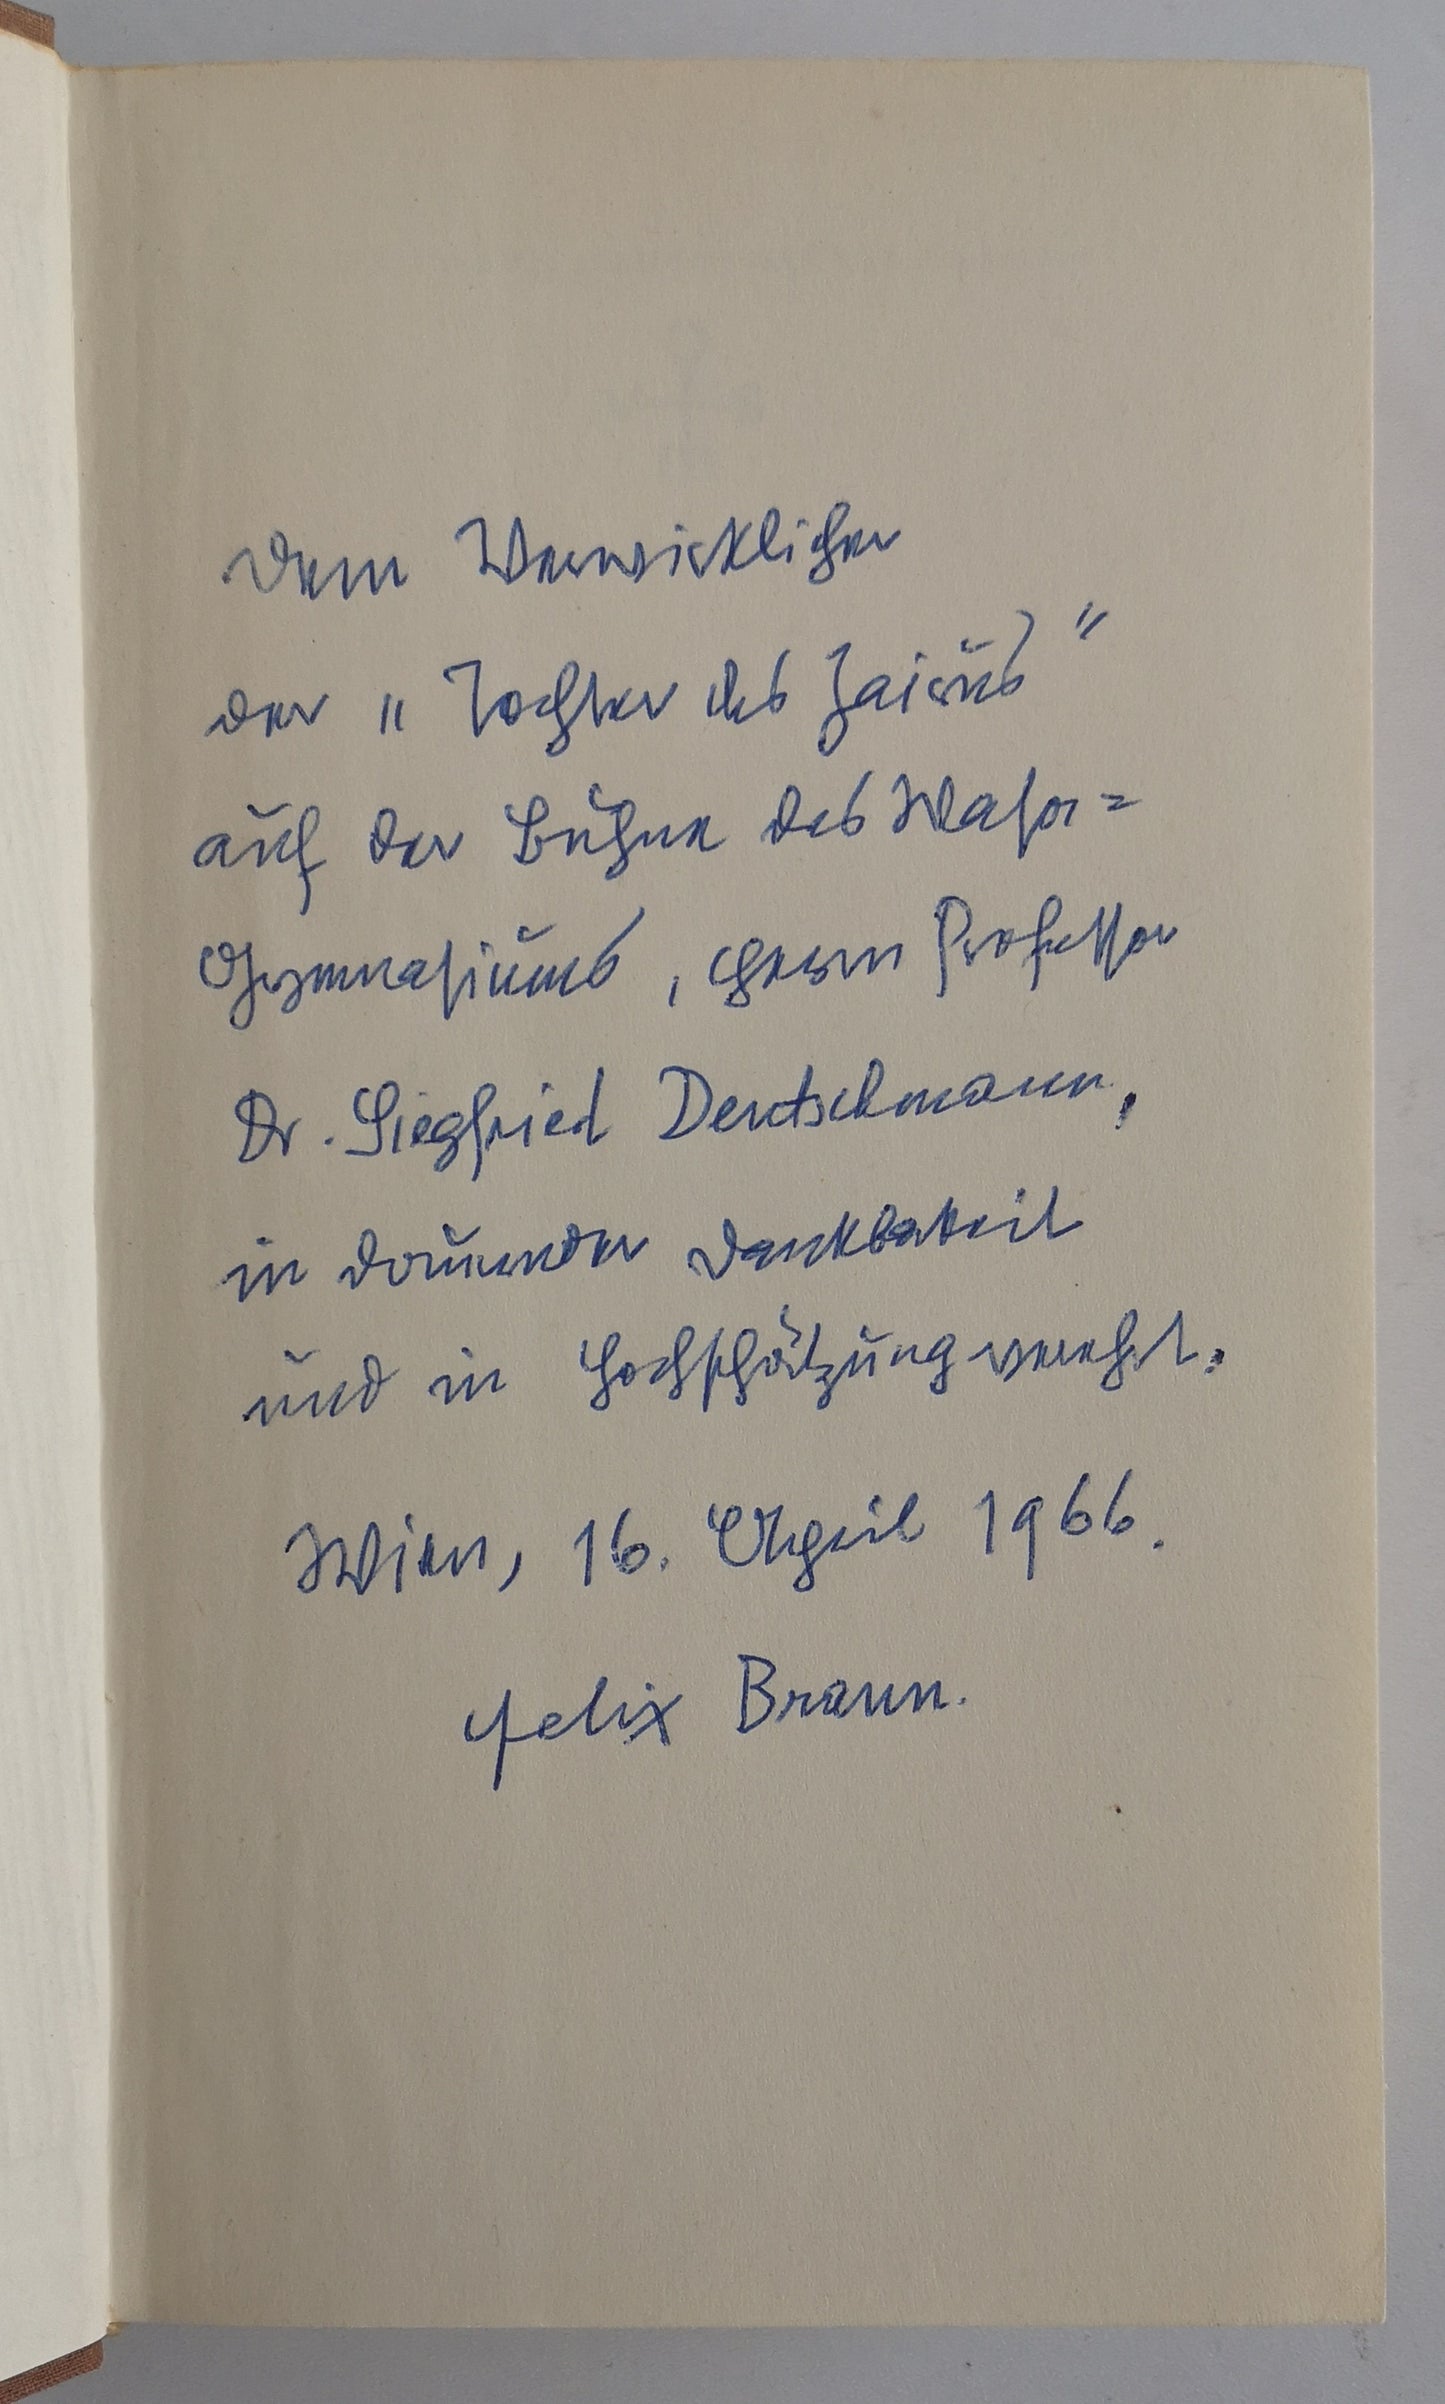 Dem Verwirklicher
der „Tochter des Jairus"
auf der Bühne des Wasa=
Gymnasiums, Herrn Professor
Dr. Siegfried Deutschmann,
in dauernder Dankbarkeit
und in Hochschätzung verehrt.
Wien, 16. April 1966.
Felix Braun.